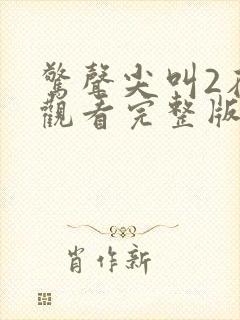 驚聲尖叫2在
觀看完整版
肖作新